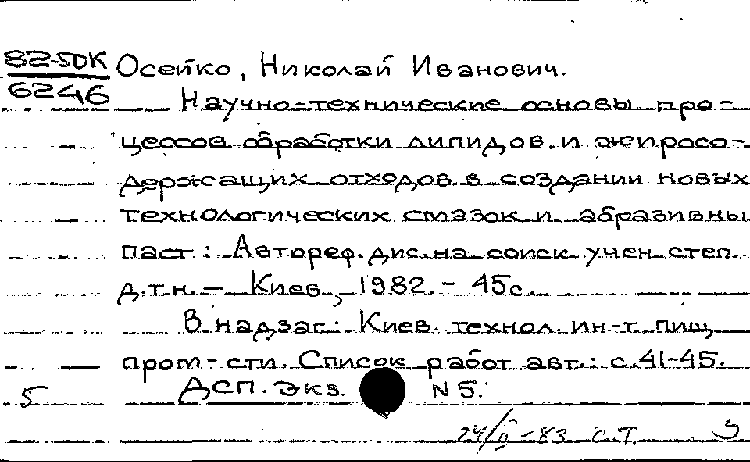 82-5ДК
6246
Осейко, Николай Иванович.
Научно-технические основы про-
цессов обработки липидов и жиросо-
держащих отходов в создании новых
технологических смазок и абразивны
паст: Автореф. дис. на соиск. учен. степ.
д.т.н. - Киев, 1982. - 45с.
В надзаг.: Киев. технол. ин-т пищ.
пром-сти. Список работ авт.: с. 41-45.
5 ДСП. Экз. N 5.
24/II-83 С.Т.